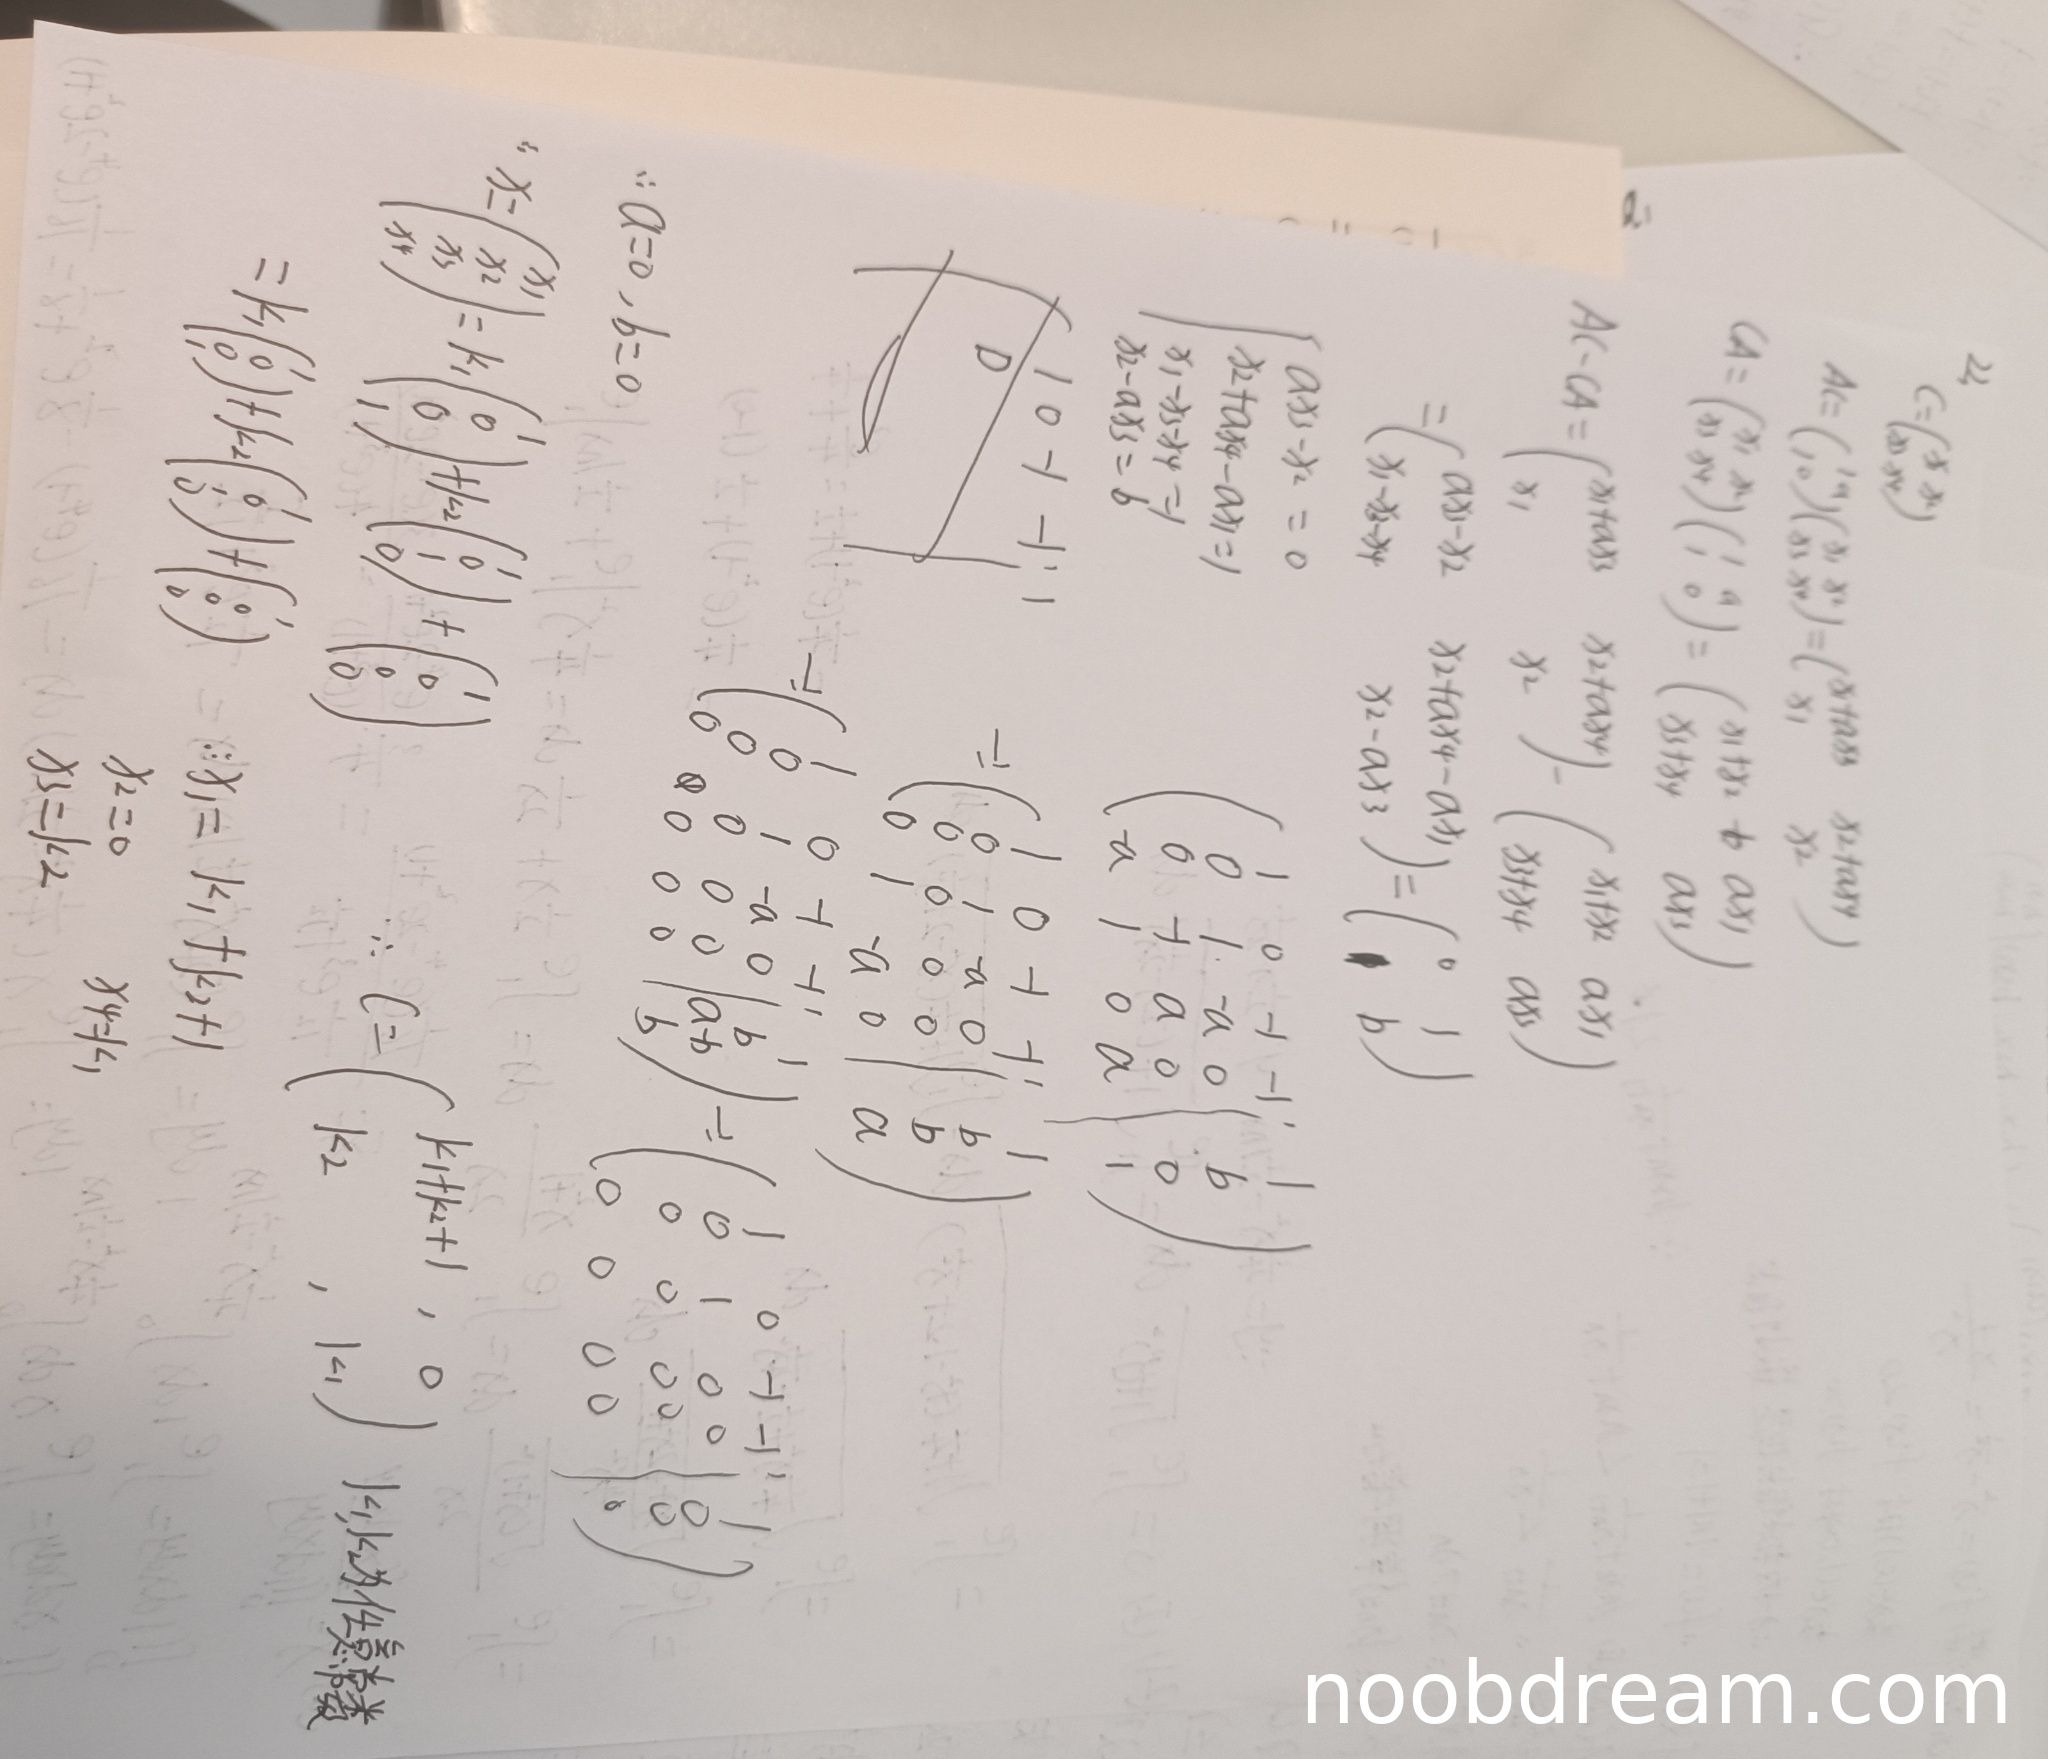 24
C=(x1 x2
x3 x4)
AC=(1 a
1 0)(x1 x2
x3 x4)=(x1+ax3 x2+ax4
x1 x2)
CA=(x1 x2
x3 x4)(1 a
1 0)=(x1+x2 ax1
x3+x4 ax3)
AC-CA=(x1+ax3 x2+ax4
x1 x2)-(x1+x2 ax1
x3+x4 ax3)
=(ax3-x2 x2+ax4-ax1
x1-x3-x4 x2-ax3)=(0 1
b)
ax3-x2=0
x2+ax4-ax1=1
x1-x3-x4=1
x2-ax3=b
1 0 -1 -1 1
0
(1 0 -1 -1 | 1
0 1 -a 0 | b
0 -1 a 0 | 0
-a 1 0 a | 1)
=(1 0 -1 -1 | 1
0 1 -a 0 | b
0 0 0 0 | b
0 1 -a 0 | a)
=(1 0 -1 -1 | 1
0 1 -a 0 | b
0 0 0 0 | a+b
0 0 0 0 | b)=(1 0 -1 -1 | 1
0 1 0 0 | 0
0 0 0 0 | 0
0 0 0 0 | 0)
∴a=0,b=0
∴x=(x1
x2
x3
x4)=k1(1
0
0
1)+k2(1
0
1
0)+(1
0
0
0)
∴C=(k1+k2+1, 0
k2, k1) k1,k2为任意常数
=k1(1
0
0
1)+k2(1
0
1
0)+(1
0
0
0) ∴x1=k1+k2+1
x2=0 x4=k1
x3=k2
noobdream.com